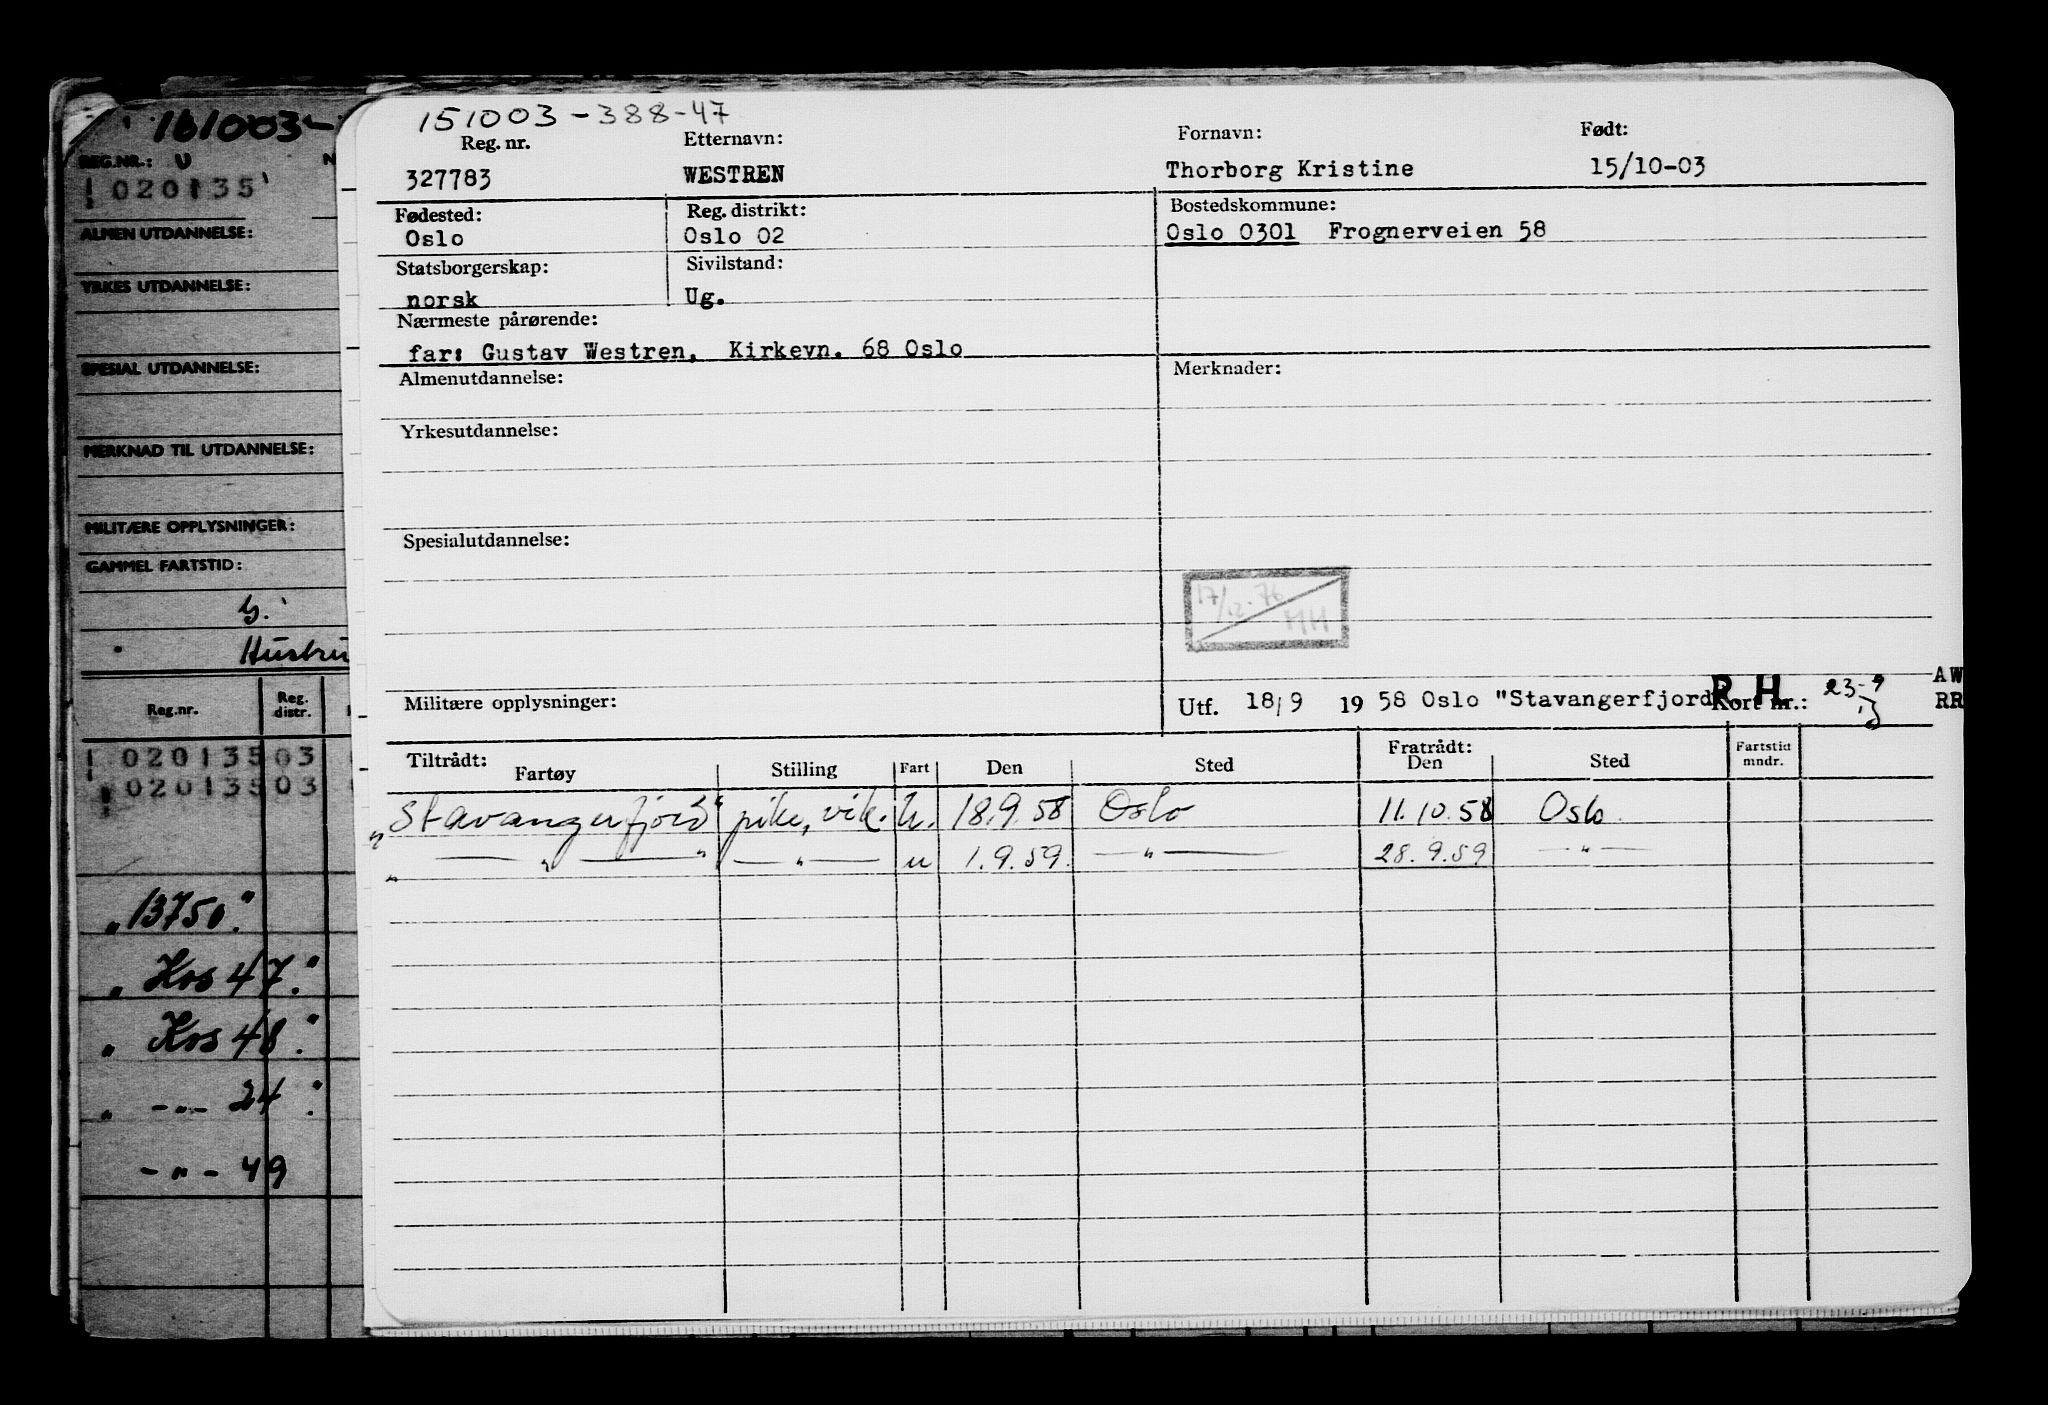 161003-
REG.NR.:
020135
ALMEN UTDANNELSE:
YRKES UTDANNELSE:
SPESIAL UTDANNELSE:
MERKNAD TIL UTDANNELSE:
MILITÆRE OPPLYSNINGER:
GAMMEL FARTSTID:
Hustru
Reg.nr. Reg. distr.
020135 03
020135 03
„13750."
„ Kos 47."
„ Kos 48."
„ -"- 24."
-"- 49
151003-388-47
Reg. nr. Etternavn: Fornavn: Født:
327783 WESTREN Thorborg Kristine 15/10-03
Fødested: Reg. distrikt: Bostedskommune:
Oslo Oslo 02 Oslo 0301 Frognerveien 58
Statsborgerskap: Sivilstand:
norsk Ug.
Nærmeste pårørende:
far: Gustav Westren, Kirkevn. 68 Oslo
Almenutdannelse: Merknader:
Yrkesutdannelse:
Spesialutdannelse:
17/12-76 HH
Militære opplysninger: Utf. 18/9 1958 Oslo "Stavangerfjord R.H. Kort nr.: 23-9
AW
RR
Tiltrådt: Fratrådt:
Fartøy Stilling Fart Den Sted Den Sted Fartstid mndr.
„Stavangerfjord" pike, vik. u. 18.9.58 Oslo 11.10.58 Oslo
„ — " — " — " — u 1.9.59. — " — 28.9.59 — " —